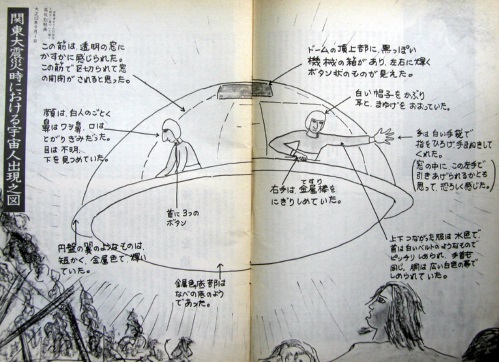 関東大震災時における宇宙人出現之図
この筋は、透明の窓に
かすかに感じられた。
この筋で区切られて窓
の開閉がされると思った。
ドームの頂上部に、黒っぽい
機械的箱があり、左右に輝く
ボタン状のものが見えた。
白い帽子をかぶり
耳と、まゆげをおおっていた。
顔は、白人のごとく
鼻はワシ鼻、口は
とがりぎみだった。
目は不明。
下を見つめていた。
手は白い手袋で
指をひろげ手まねきして
くれた。
窓の中に、この左手で
引きあげられるかとも
思って、恐ろしく感じた。
首に3つの
ボタン
右手は、金属棒を
てすり
にぎりしめていた。
円盤の翼のようなものは、
短かく、金属色で輝い
ていた。
金属色底部は
なべの底のよう
であった。
上下つながった服は水色で
首は白いベルトのようなもので
ピッチリしめられ、手首も
同じ、胴は広い白色の幕で
しめられていた。